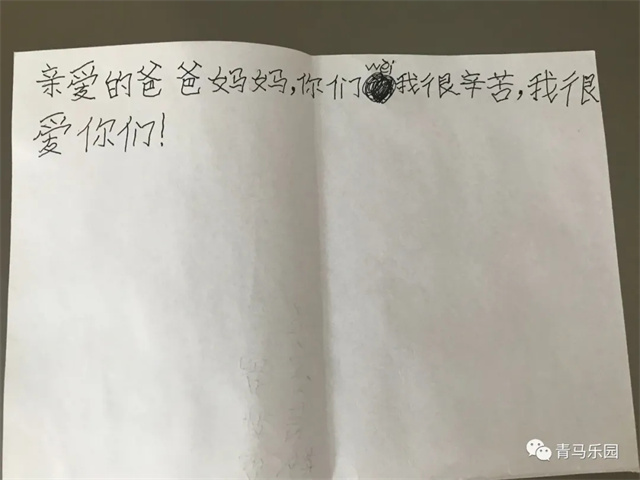 亲爱的爸爸妈妈,你们wèi我很辛苦,我很
爱你们!
青马乐园